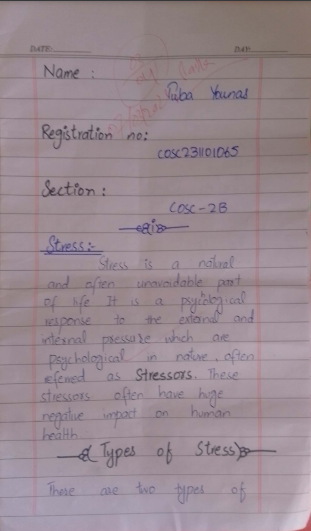 DATE:
DAY:
Name :
Tuba Younas
Registration no:
COSC231101065
Section :
COSC-2B
Stress:-
Stress is a natural
and often unavoidable part
of life It is a psycological
response to the external and
internal pressure which are
psychological in nature , often
refered as Stressors. These
stressors often have huge
negative impact on human
health
Types of Stress
There are two types of